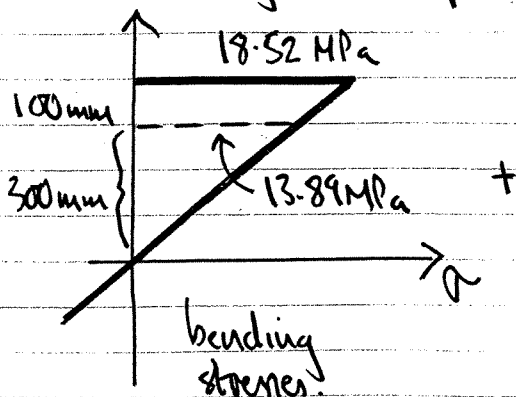 18.52 MPa
100mm
300mm
13.89MPa
+
σ
bending
stresses.